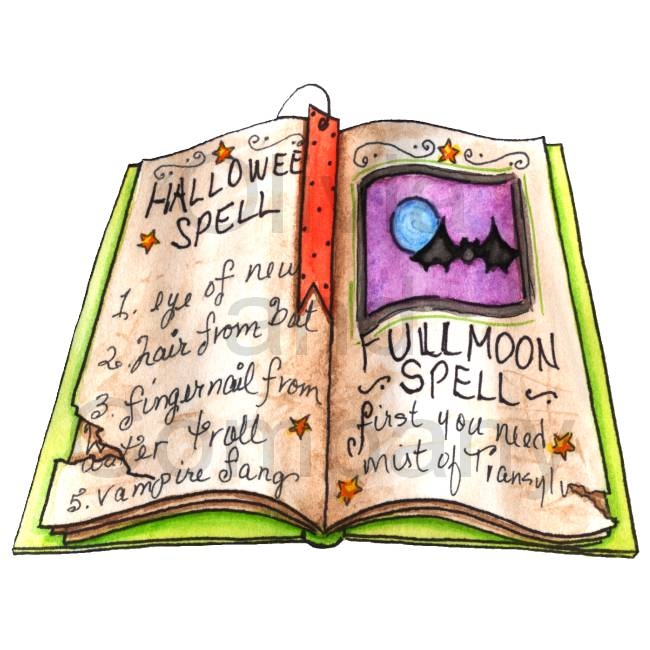 HALLOWEE
SPELL
1. eye of new
2. hair from Bat
3. fingernail from
water Troll
5. vampire fang
FULLMOON
SPELL
first you need
mist of Transylv
Olivia
and
Company